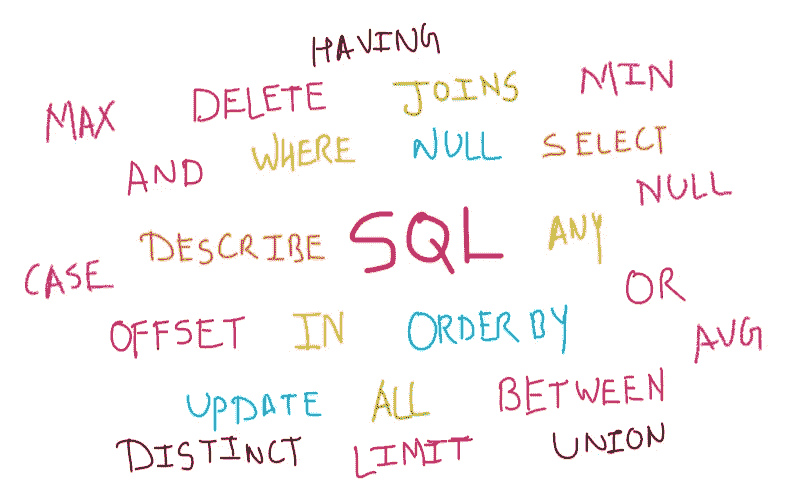 HAVING
MAX DELETE JOINS MIN
AND WHERE NULL SELECT
NULL
DESCRIBE SQL ANY
CASE
OR
OFFSET IN ORDER BY
AVG
UPDATE ALL BETWEEN
DISTINCT LIMIT UNION